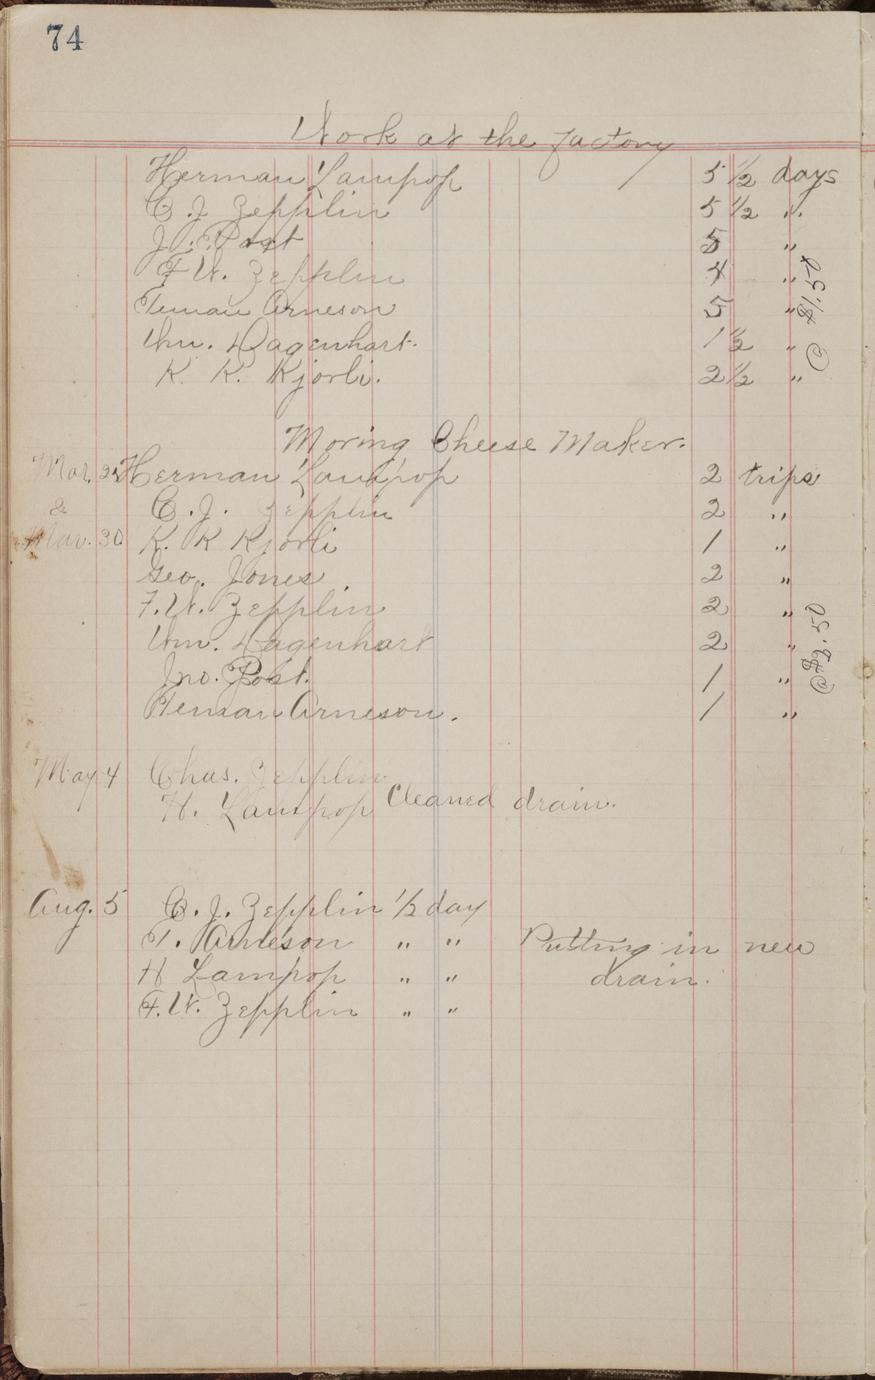 74
Work at the factory
Herman Lampop 5 1/2 days
C. J. Zepplin 5 1/2 "
J. Post 5 "
F. W. Zepplin 4 "
Arneson 5 "
Wm. Dagenhart. 1 1/2 "
K. K. Kjorli. 2 1/2 "
@ $1.50
Moving Cheese Maker.
Mar. 25 Herman Lampop 2 trips
& C. J. Zepplin 2 "
Mar. 30 K. K Kjorli 1 "
Geo. Jones 2 "
F. W. Zepplin 2 "
Wm. Dagenhart 2 "
Jno. Post. 1 "
Arneson. 1 "
May 4 Chas. Zepplin
H. Lampop Cleaned drain.
Aug. 5 C. J. Zepplin 1/2 day
T. Arneson " " Putting in new
H Lampop " " drain.
F. W. Zepplin " "